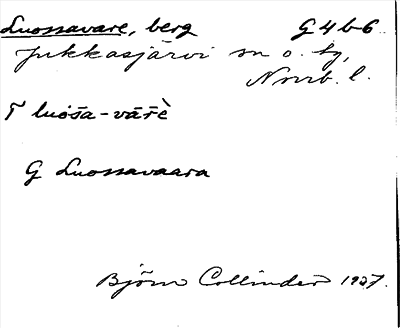 Luossavare, berg G4b6
Jukkasjärvi sn o. tg,
Norrb. l.
T luo͕s̄a-vār̄è
G Luossavaara
Björn Collinder 1927.